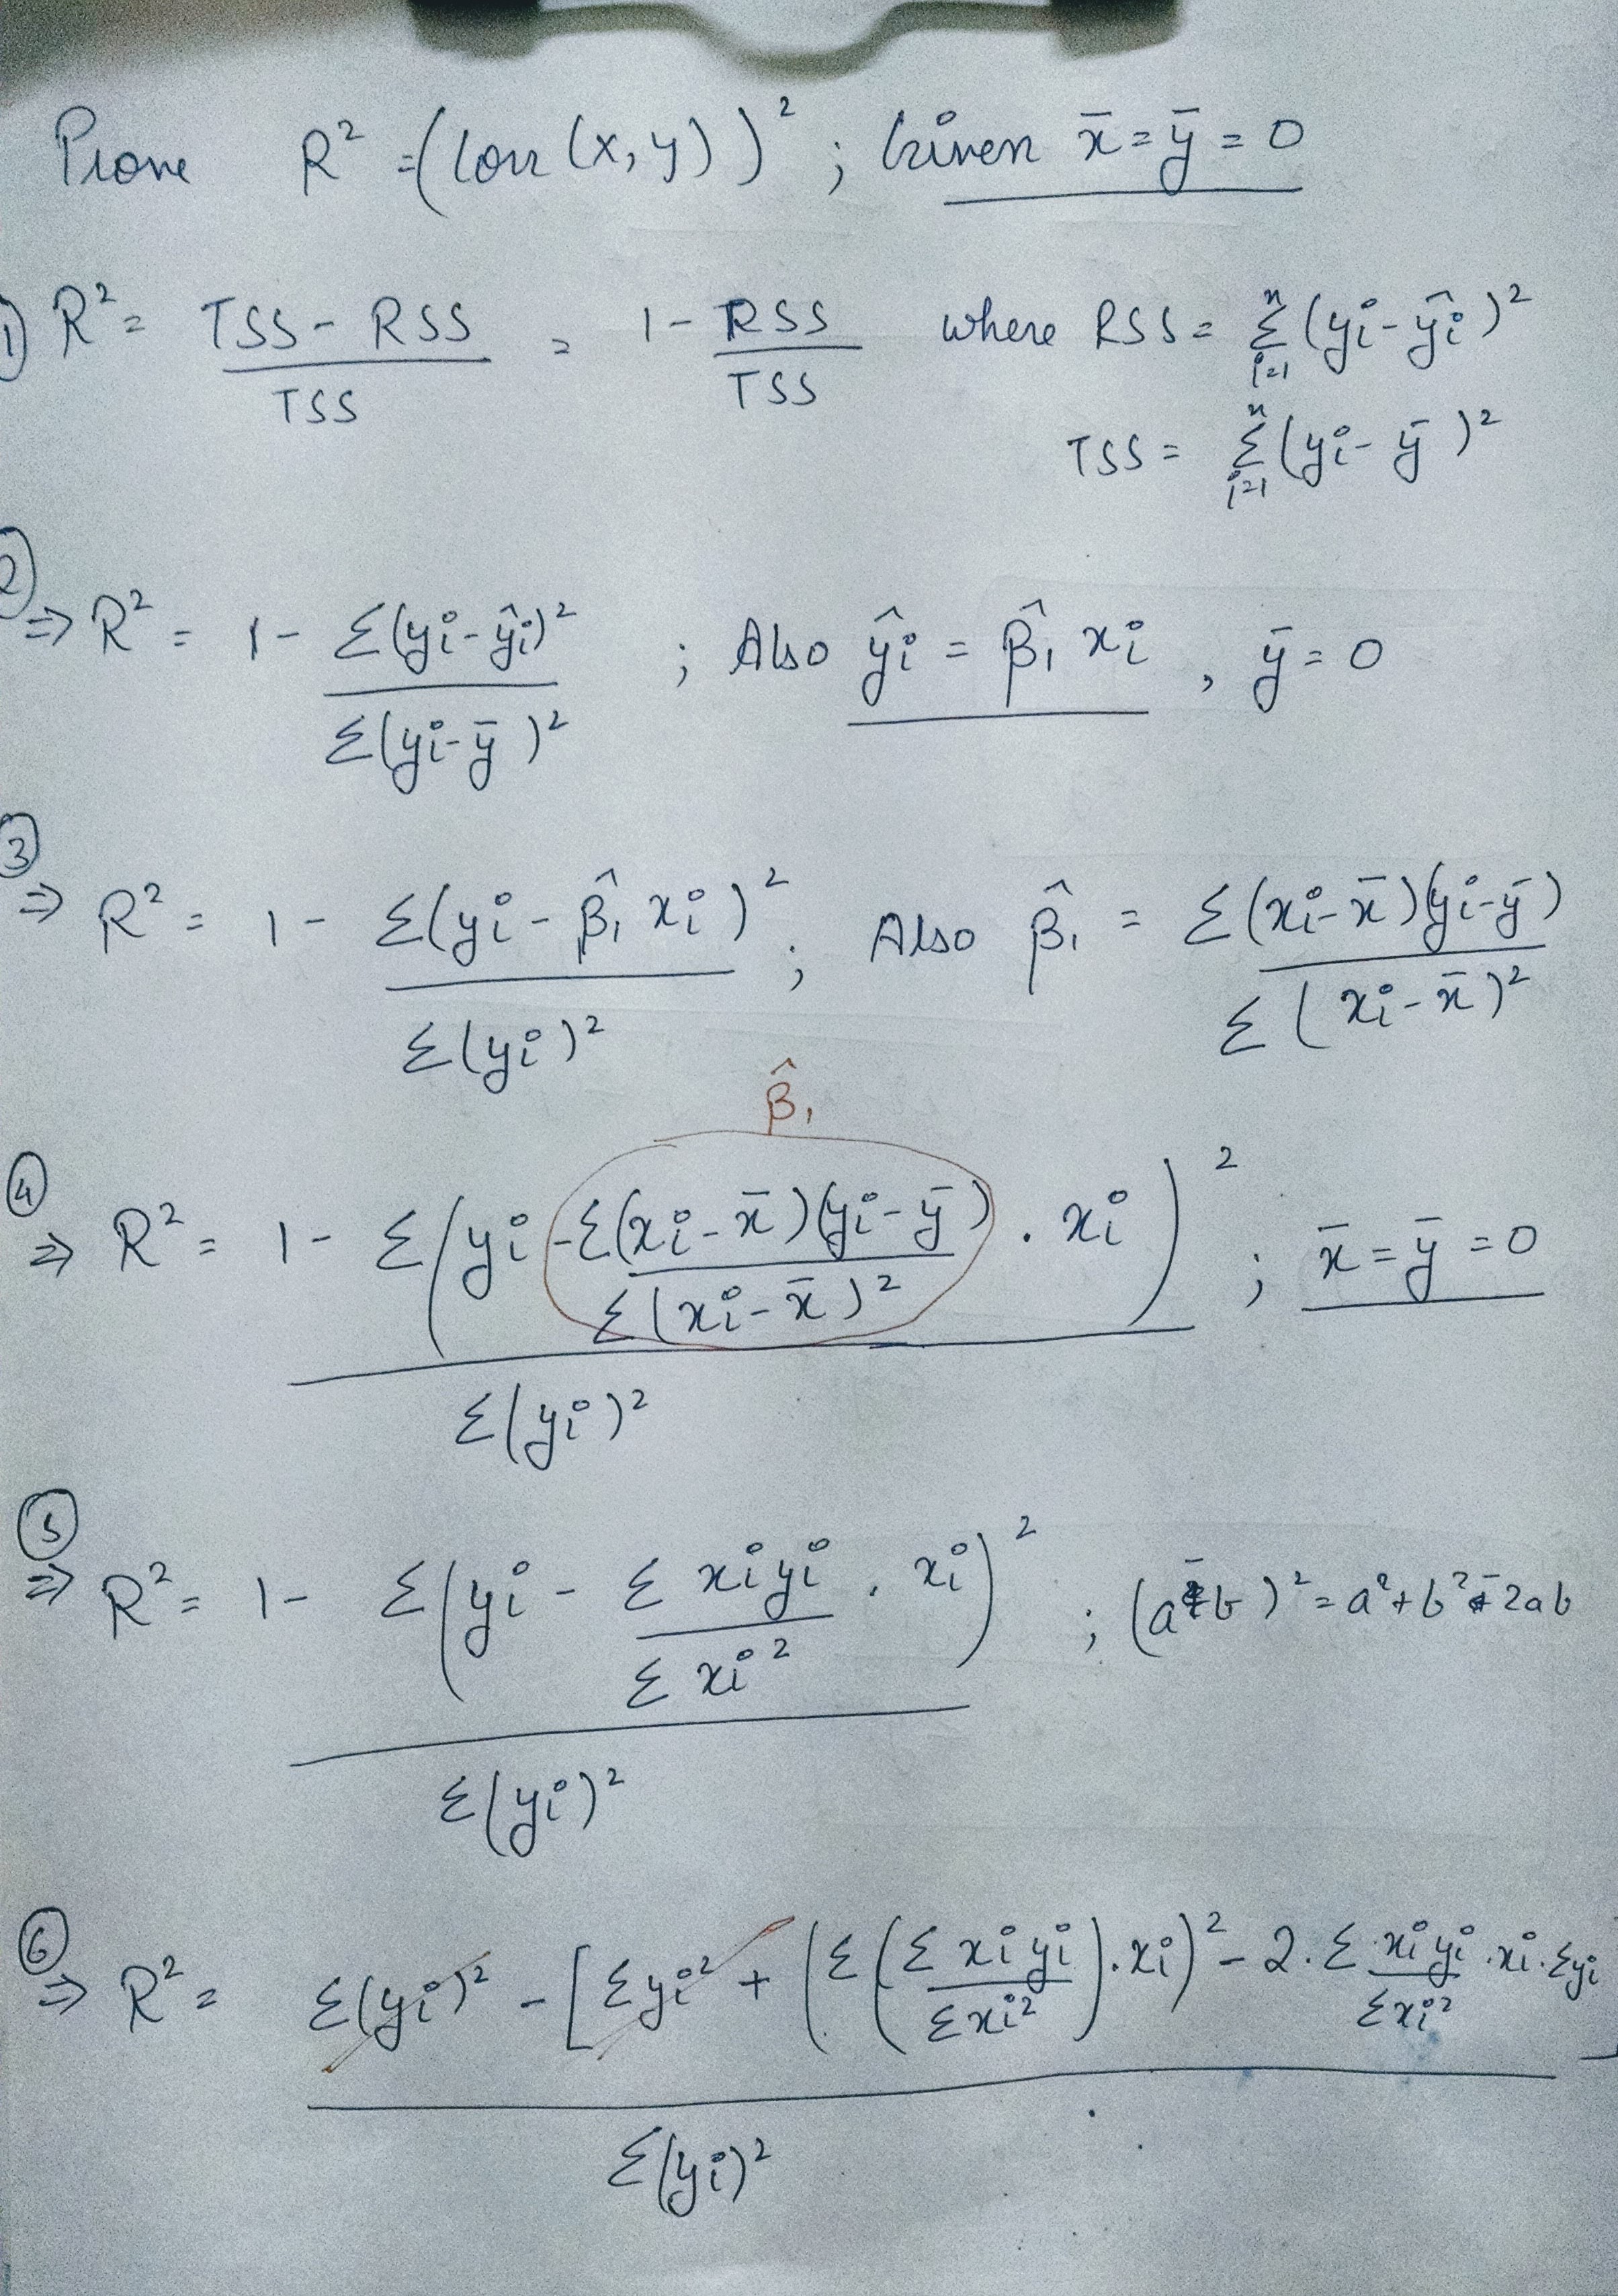 Prove R² = (Corr (x, y))² ; Given x̄ = ȳ = 0
1) R² = (TSS - RSS) / TSS = 1 - RSS / TSS where RSS = Σ_{i=1}^{n} (yi - ŷi)²
TSS = Σ_{i=1}^{n} (yi - ȳ)²
2
⇒ R² = 1 - Σ(yi - ŷi)² / Σ(yi - ȳ)² ; Also ŷi = β̂₁ xi , ȳ = 0
3
⇒ R² = 1 - Σ(yi - β̂₁ xi)² / Σ(yi)² ; Also β̂₁ = Σ(xi - x̄)(yi - ȳ) / Σ(xi - x̄)²
β̂₁
4
⇒ R² = 1 - Σ(yi - Σ(xi - x̄)(yi - ȳ) / Σ(xi - x̄)² . xi)² / Σ(yi)² ; x̄ = ȳ = 0
5
⇒ R² = 1 - Σ(yi - Σ xi yi / Σ xi² . xi)² / Σ(yi)² ; (a - b)² = a² + b² - 2ab
6
⇒ R² = Σ(yi)² - [Σyi² + (Σ(Σ xi yi / Σxi²) . xi)² - 2 . Σ xi yi / Σxi² . xi . Σyi] / Σ(yi)²